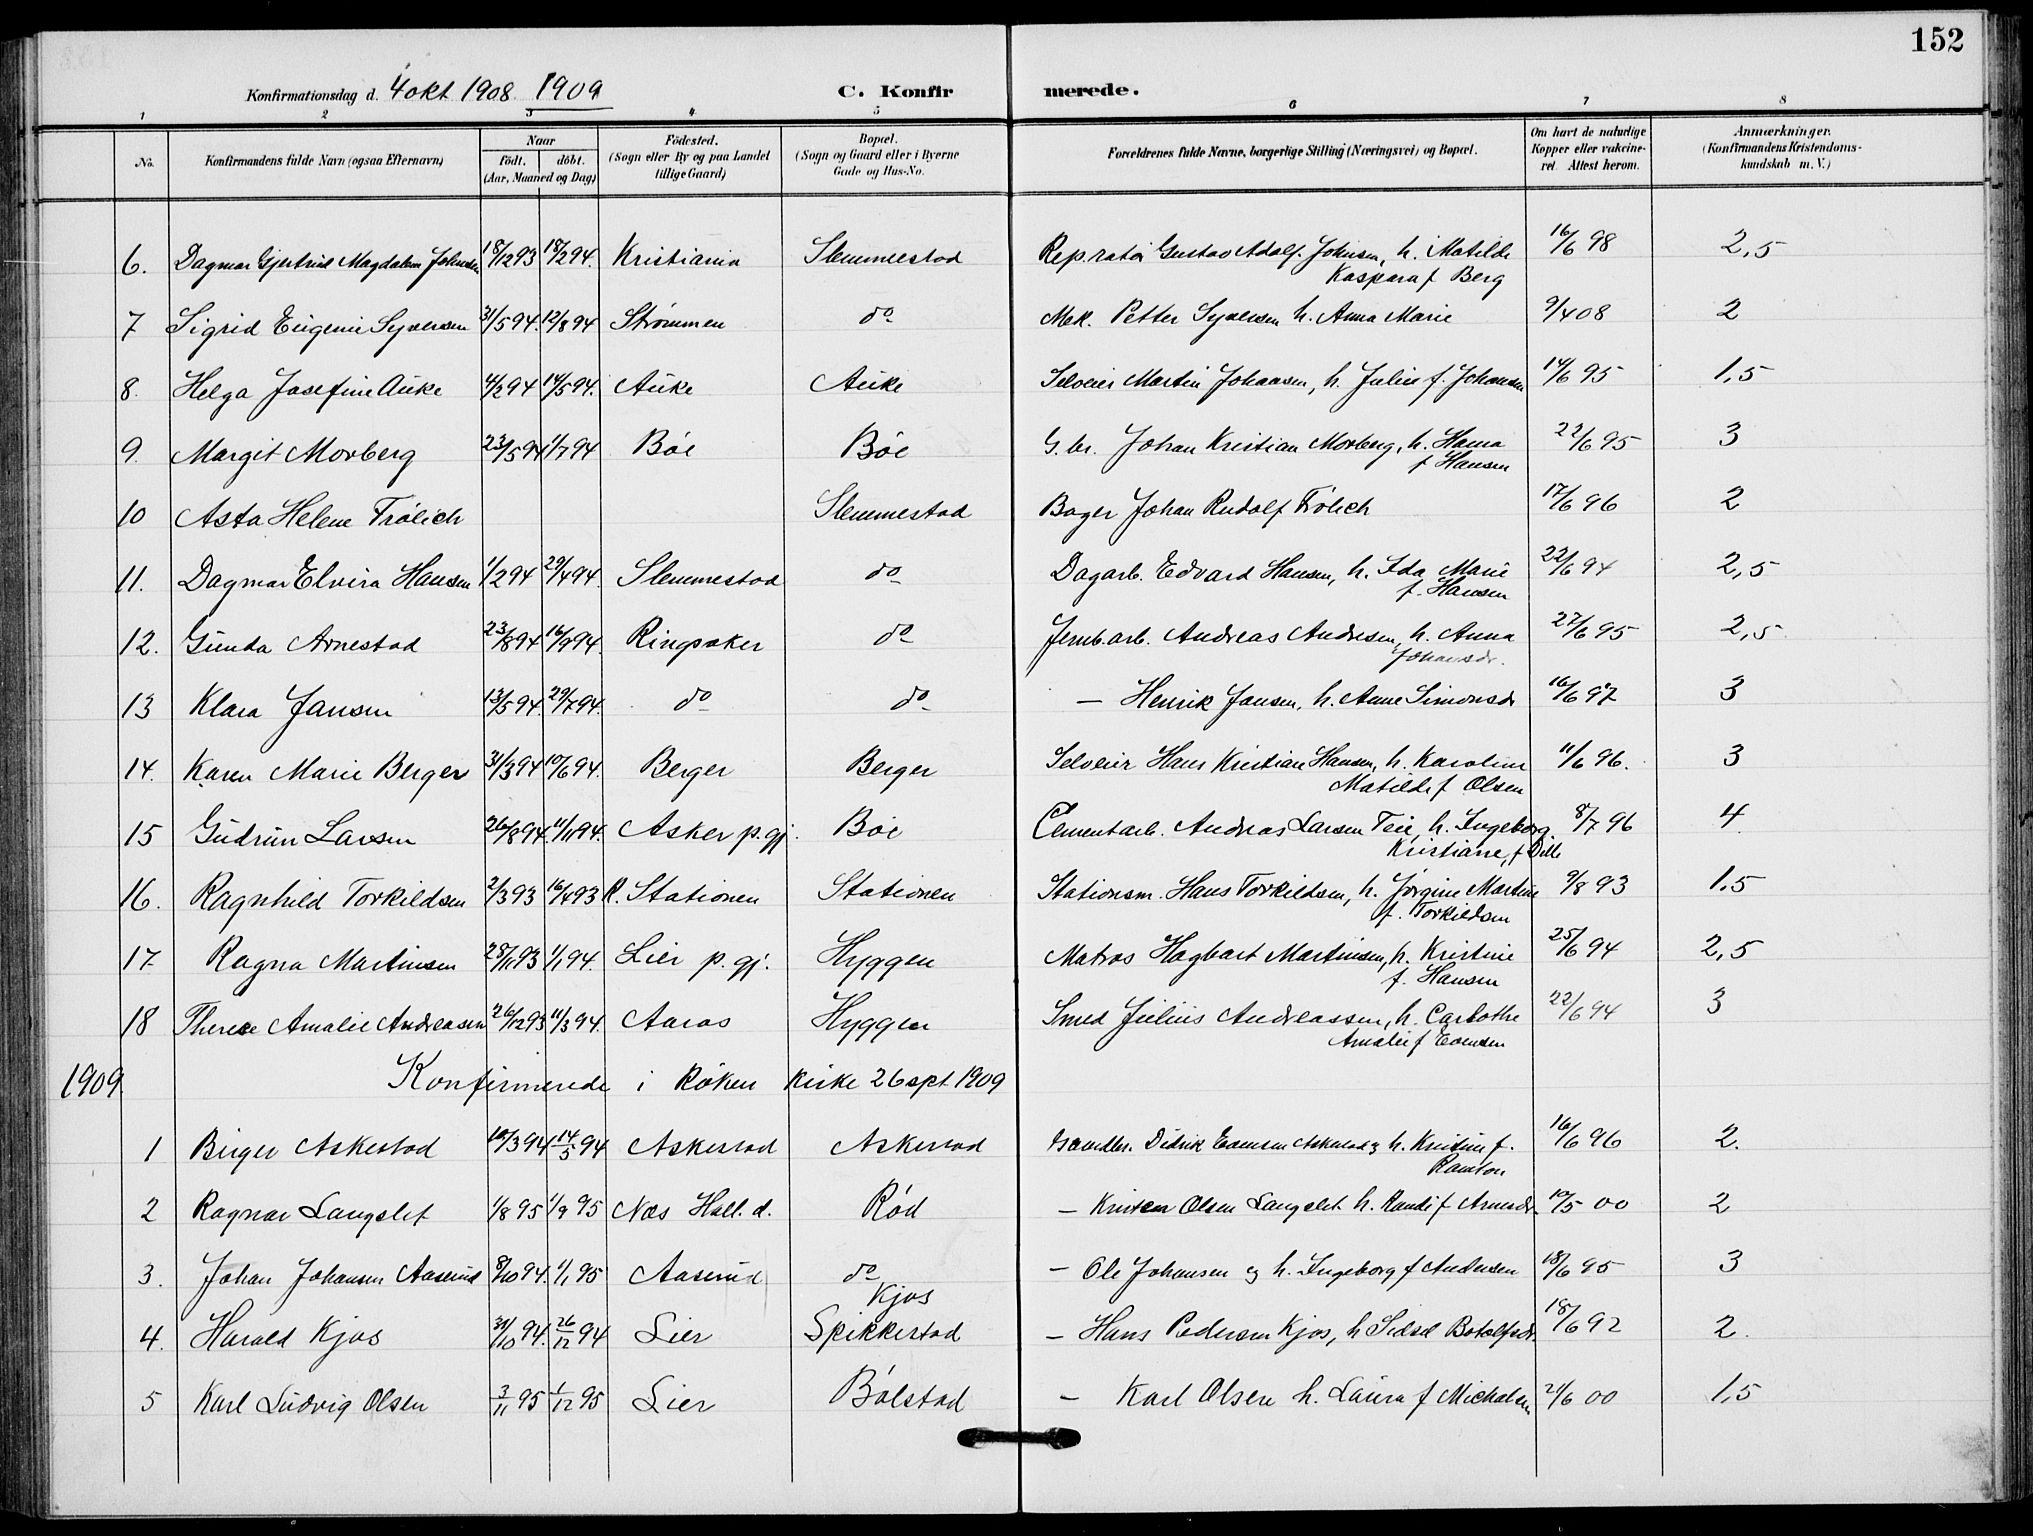 152
Konfirmationsdag d. 4 okt 1908. 1909
C. Konfirmerede.
1 2 3 4 5 6 7 8
No. Konfirmandens fulde Navn (ogsaa Efternavn) Naar födt. döbt. (Aar, Maaned og Dag) Födested. (Sogn eller By og paa Landet tillige Gaard) Bopæl. (Sogn og Gaard eller i Byerne Gade og Hus-No. Forældrenes fulde Navne, borgerlige Stilling (Næringsvei) og Bopæl. Om havt de naturlige Kopper eller vakcineret. Attest herom. Anmærkninger. (Konfirmandens Kristendomskundskab m. V.)
6. Dagmar Gjertrud Magdalena Johnsen 18/12 93 18/2 94. Kristiania Slemmestad Rep.ratör Gustav Adolf Johnsen, h. Matilde 16/6 98 2,5
Kaspara f Berg
7 Sigrid Eugenie Syversen 31/5 94. 12/8 94 Strømmen do Mek. Petter Syversen h. Anna Marie 9/4 08 2
8. Helga Josefine Auke 4/2 94 14/5 94. Auke Auke Selveier Martin Johansen, h. Julie f. Johansen 14/6 95 1,5
9. Margit Morberg 23/5 94 1/7 94 Böe Böe G.br. Johan Kristian Morberg, h. Hanna 22/6 95 3
f Hansen
10 Asta Helene Frölich Slemmestad Bager Johan Rudolf Frölich 17/6 96 2
11. Dagmar Elvira Hansen 1/2 94 29/4 94. Slemmestad do Dagarb. Edvard Hansen, h. Ida Marie 22/6 94 2,5
f. Hansen
12. Gunda Arnestad 23/8 94 16/9 94. Ringsaker do Jernb.arb. Andreas Andresen, h. Anna 27/6 95 2,5
Johansdr.
13 Klara Jansen 13/5 94. 29/7 94. do do — Henrik Jansen, h. Anne Simonsdr 16/6 97 3
14. Karen Marie Berger 31/3 94 10/6 94. Berger Berger Selveier Hans Kristian Hansen, h. Karoline 11/6 96. 3
Matilde f Olsen
15 Gudrun Larsen 26/8 94. 11/11 94. Asker p.gj. Böe Cementarb. Andreas Larsen Teie, h. Ingeborg 8/7 96 4
Kristiane, f Dille
16. Ragnhild Torkildsen 2/3 93 16/4 93 R. Stationen Stationen Stationsm. Hans Torkildsen, h. Jørgine Martine 9/8 93 1,5
f. Torkildsen
17 Ragna Martinsen 28/11 93 1/1 94. Lier p.gj. Hyggen Matros Hagbart Martinsen, h. Kristine 25/6 94 2,5
f. Hansen
18 Therese Amalie Andreasen 26/12 93 11/3 94. Aaras Hyggen Smed Julius Andreassen, h. Carlothe 22/6 94 3
Amalie f Evensen
1909. Konfirmerede i Röken kirke 26 spt. 1909
1 Birger Askestad 10/3 94 14/5 94 Askestad Askestad Didrik Evensen Askestad og h. Kristine f. 16/6 96 2.
2 Ragnar Langslet 1/8 95 1/9 95 Næs Hall.d. Röd — Kristen Olsen Langslet h. Randi f 10/5 00 2
3. Johan Johansen Aaserud 8/10 94. 1/1 95 Aaserud do — Ole Johansen og h. Ingeborg f Andersen 18/6 95 3
Kjos
4. Harald Kjos 31/10 94. 26/12 94 Lier Spikkestad — Hans Pedersen Kjos, h Sidsel Botolfsdr. 18/6 92 2.
5 Karl Ludvig Olsen 3/11 95 1/12 95 Lier Bölstad — Karl Olsen h. Laura f Michalsen 21/6 00 1,5